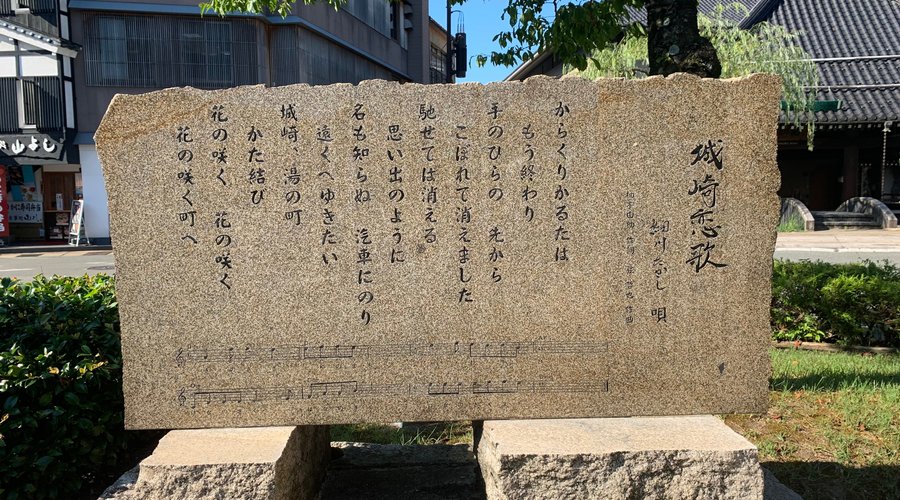 城崎恋歌
細川たかし 唄
からくりかるたは
もう終わり
手のひらの 先から
こぼれて消えました
馳せては消える
思い出のように
名も知らぬ 汽車にのり
遠くへゆきたい
城崎、湯の町
かた結び
花の咲く 花の咲く
花の咲く町へ
山よし